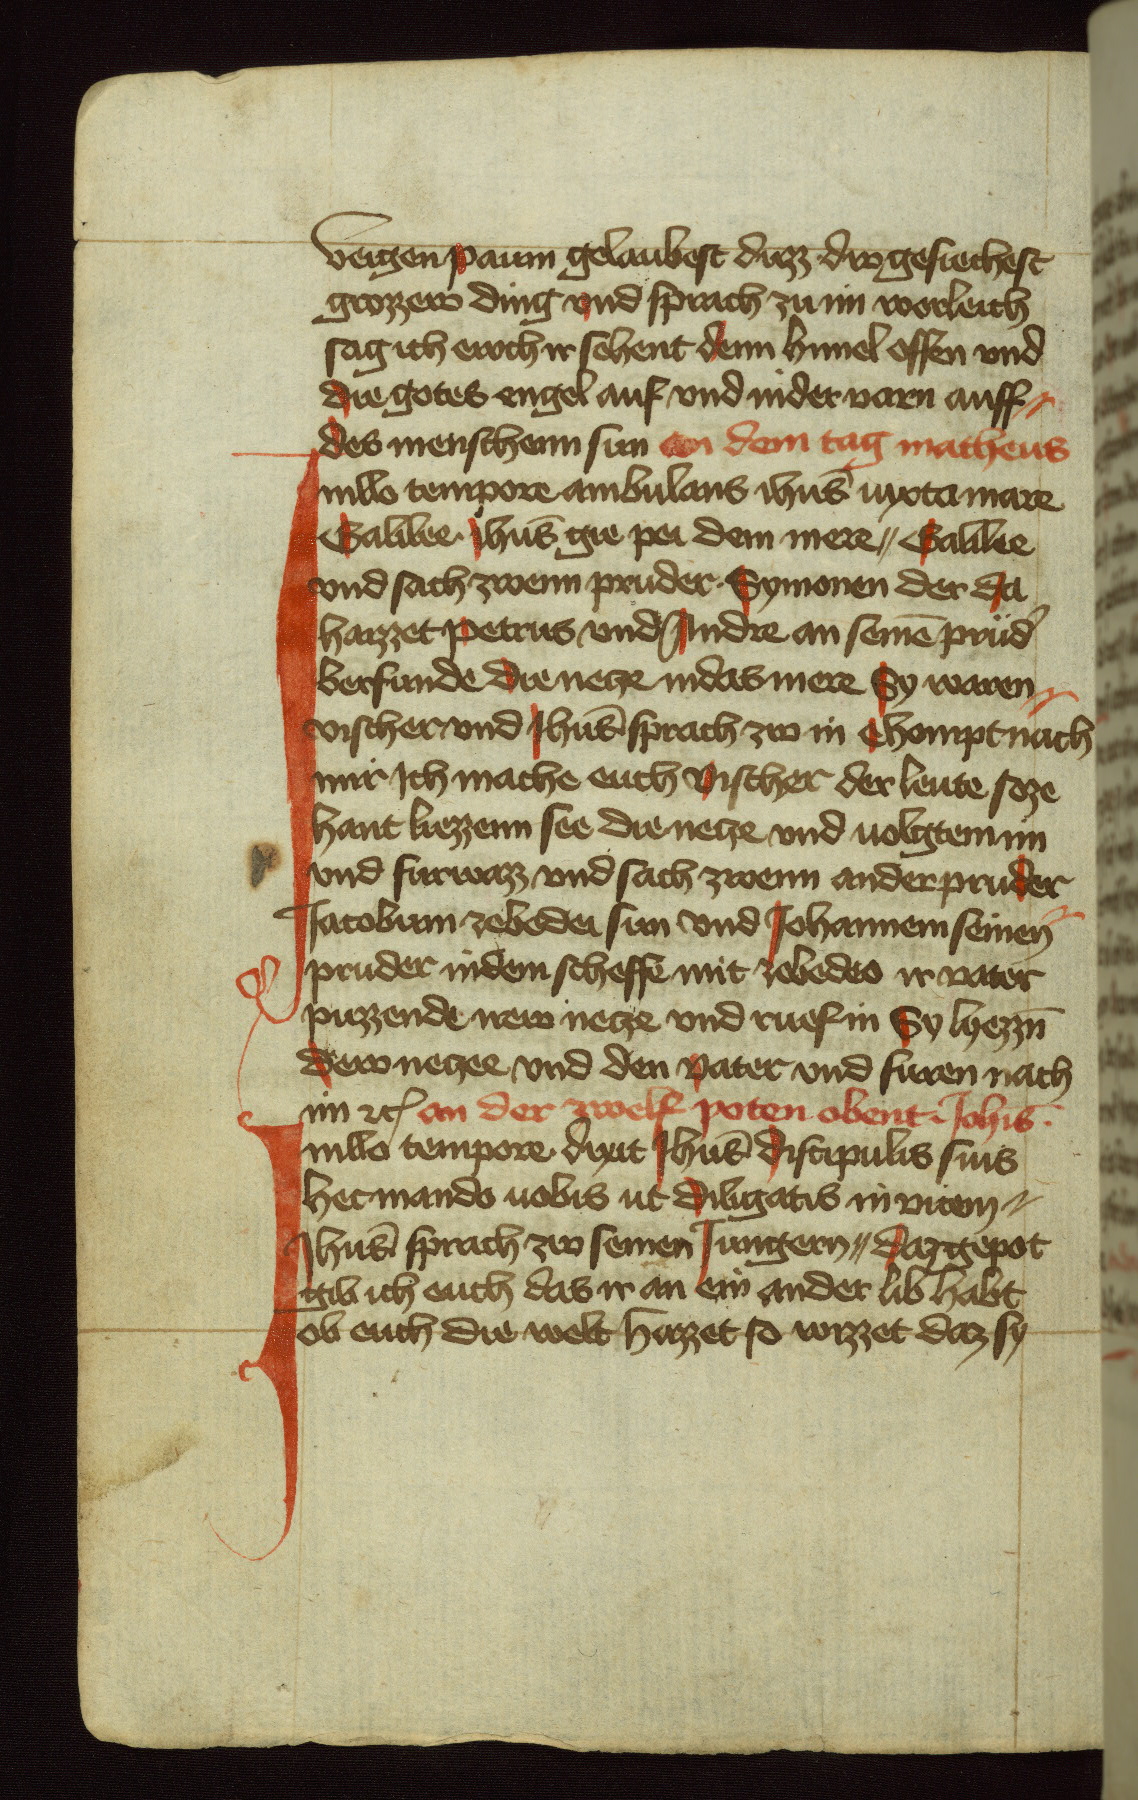 veigen paum gelaubest duzz · dw gesiechest
grozzew ding vnd sprach zu im worleich
sag ich ewch ir sehent denn himel offen vnd
die gotes engel auf vnd nider varn auff
des menschenn sun an dem tag matheus
In illo tempore ambulans ihus̄ iuxta mare
Galilee · Ihus̄ gie pei dem mere // Galilee
vnd sach zwenn pruder · Symonen der da
hazzet petrus vnd Andre an seinē prud'
beʒsunde die necze in das mere Sy waren
vischer vnd Ihus̄ sprach zw in Chompt nach
mir Ich mache euch vischer der leute soze
hant liezzenn see die necze vnd uolgten im
vnd furwaz vnd sach zwenn ander pruder
Jacobum zebedei sun vnd Johannem seinen̄
pruder in dem scheffe mit zebedeo ir vater
puzzende irew necze vnd ruef in Sy lyezzn̄
dew necze vnd den vater vnd furen nach
im ꝛc̄ an der zwelf poten obent · Johis̄ ·
In illo tempore · dixit Ihus̄ discipulis suis
hec mando uobis ut diligatis inuicem
Ihus̄ sprach zw seinen Jungern // daz gepot
gib ich euch das ir an ein ander lib habt
ob euch die welt hazzet so wizzet daz sy